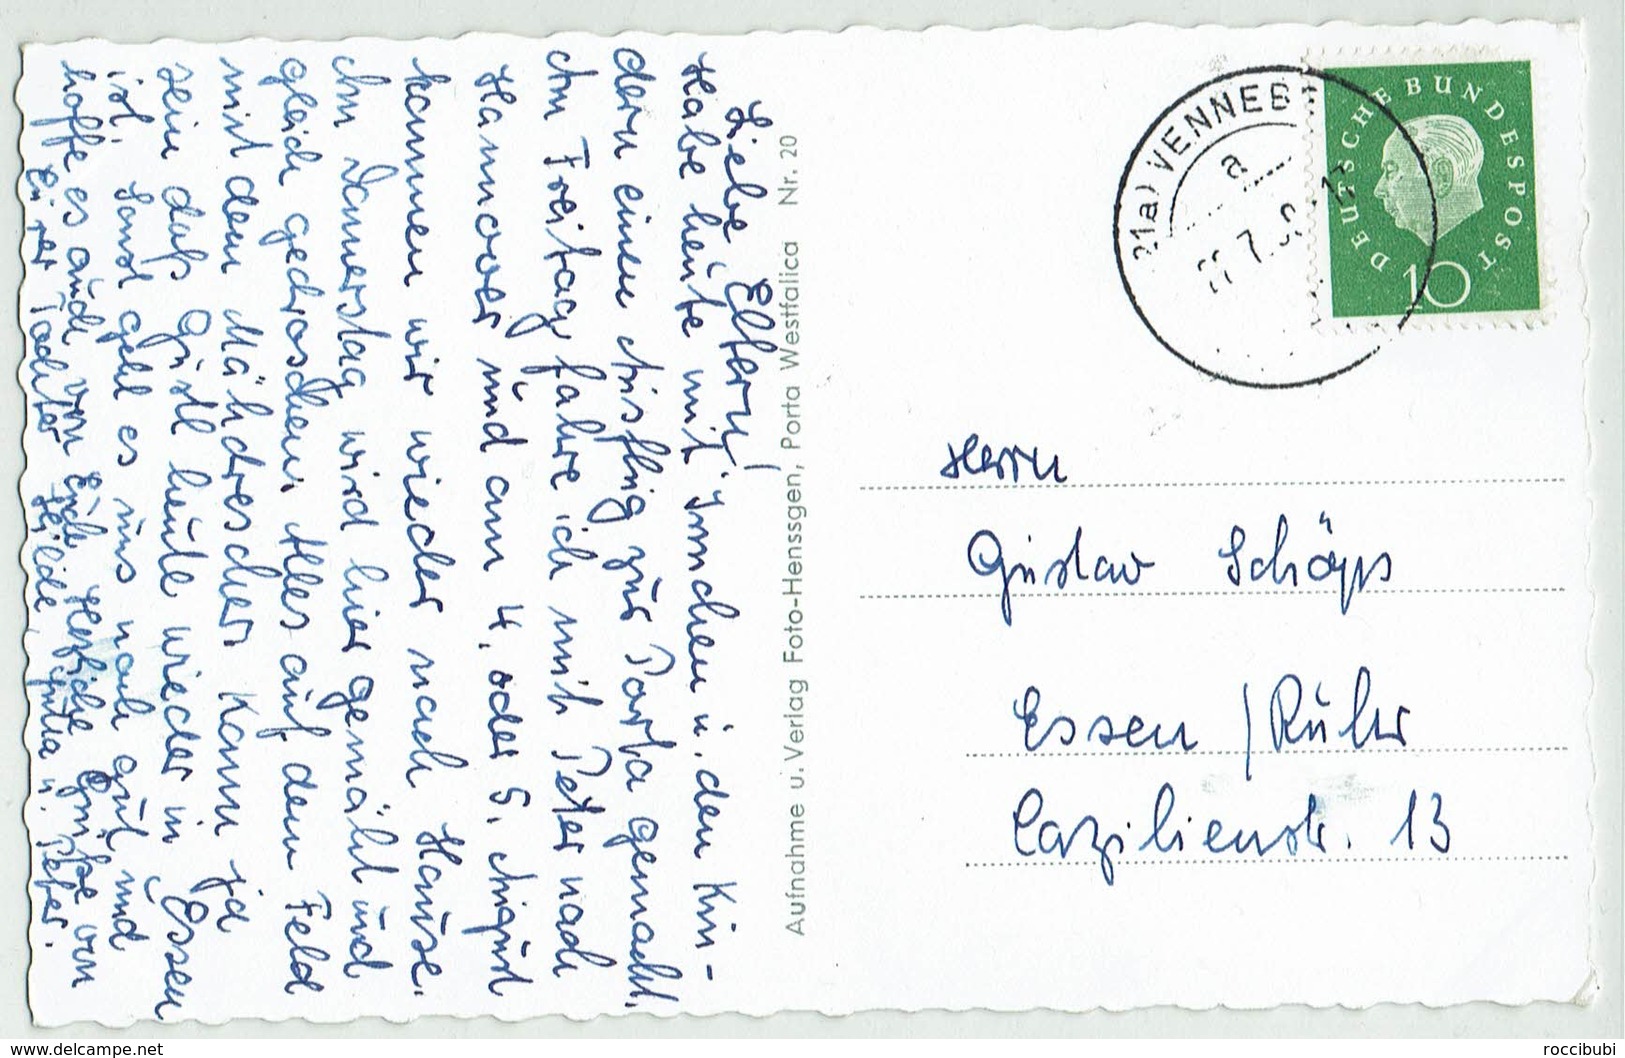 Liebe Eltern!
Habe heute mit Irmchen u. den Kin-
dern einen Ausflug zur Porta gemacht.
Am Freitag fahre ich mit Peter nach
Hannover und am 4. oder 5. August
kommen wir wieder nach Hause.
Am Donnerstag wird hier gemäht und
gleich gedroschen. Alles auf dem Feld
mit dem Mähdrescher. Kann ja
sein daß Gustl heute wieder in Essen
ist. Sonst geht es uns noch gut und
hoffe es auch von Euch. Herzliche Grüße von
Eurer Tochter Hilde, u. Peter.
Aufnahme u. Verlag Foto-Henssgen, Porta Westfalica Nr. 20
(21a) VENNEB
a
DEUTSCHE BUNDESPOST
10
Herrn
Gustav Schöps
Essen / Ruhr
Cäzilienstr. 13
www.delcampe.net
roccibubi